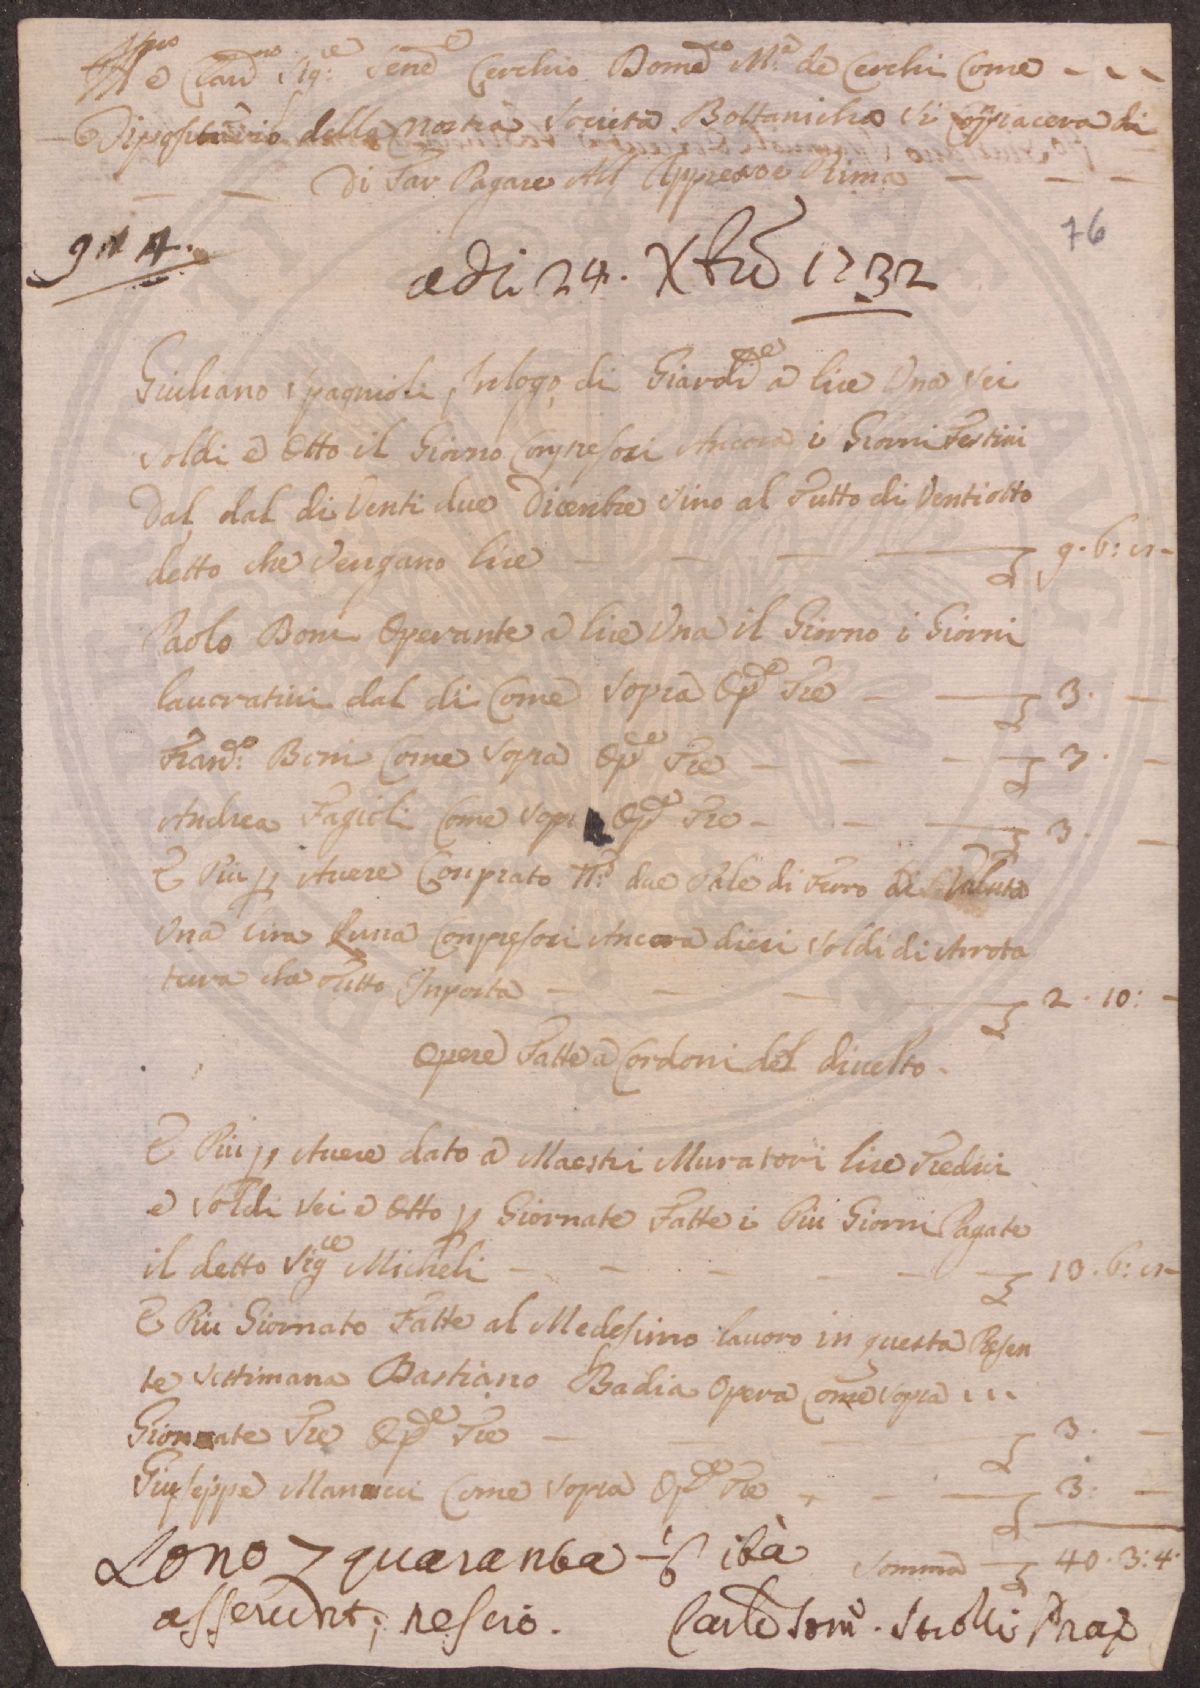 e Clar.mo Sig.re Sen.e Cerchio Dom.co M.a de Cerchi Come
Dipositario della nostra Società Bottanicha Si Conpiacerà di
Di Far Pagare All Appresoe Rima
76
adi 24. Xbre 1732
Giuliano Spagnioli, Inlogo di Giardi.e a lire Una Sei
Soldi e Otto il Giorno Conpresoci Ancora i Giorni Festivi
Dal dal di Venti due Dicenbre Sino al Tutto di Ventiotto
detto che Vengano lire 9. 6: 8
Paolo Boni Operante a lire Una il Giorno i Giorni
lavorativi dal di Come Sopra Op.e Tre 3.
Fran.co Boni Come Sopra Op.e Tre 3.
Andrea Fagioli Come Sopra Op.e Tre 3.
E Piu p Avere Conprato N.o due Pale di Ferro di Valuta
Una Lira Luna Conpresoci Ancora dieci Soldi di Arrota
tura che Tutto Inporta 2. 10:
Opere Fatte a Cordoni del divelto.
E Piu p Avere dato a Maestri Muratori lire Tredici
e Soldi Sei e Otto p Giornate Fatte i Piu Giorni Pagate
il detto Sig.re Micheli 13. 6: 8
E Piu Giornato Fatte al Medesimo lavoro in questa Presen
te Settimana Bastiano Badia Opera Come Sopra
Giornate Tre Op.e Tre 3.
Giuseppe Manucci Come Sopra Op.e Tre 3:
Somma 40. 3: 4
Sono quaranta ità
asserunt; nescio.